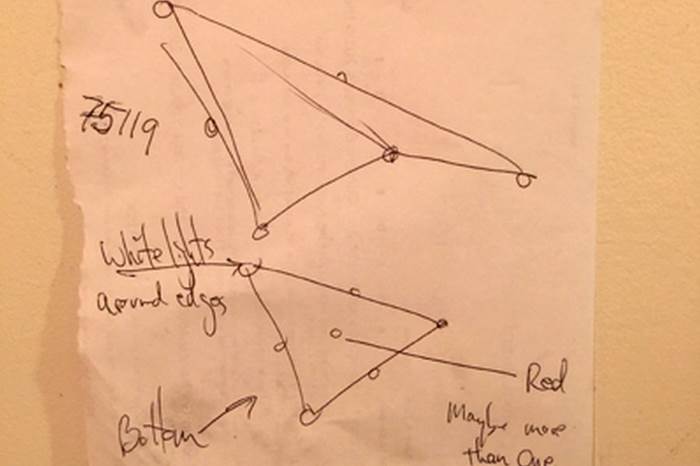 75119
White lights
around edges
Red
Bottom
Maybe more
than One